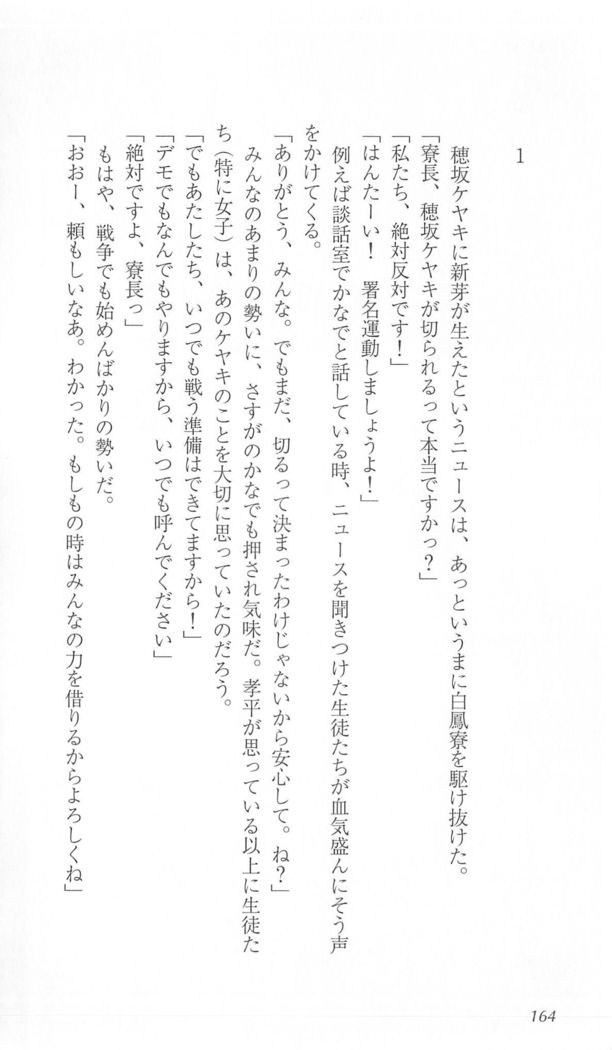 1
穂坂ケヤキに新芽が生えたというニュースは、あっというまに白鳳寮を駆け抜けた。
「寮長、穂坂ケヤキが切られるって本当ですかっ?」
「私たち、絶対反対です!」
「はんたーい! 署名運動しましょうよ!」
例えば談話室でかなでと話している時、ニュースを聞きつけた生徒たちが血気盛んにそう声
をかけてくる。
「ありがとう、みんな。でもまだ、切るって決まったわけじゃないから安心して。ね?」
みんなのあまりの勢いに、さすがのかなでも押され気味だ。孝平が思っている以上に生徒た
ち(特に女子)は、あのケヤキのことを大切に思っていたのだろう。
「でもあたしたち、いつでも戦う準備はできてますから!」
「デモでもなんでもやりますから、いつでも呼んでください」
「絶対ですよ、寮長っ」
もはや、戦争でも始めんばかりの勢いだ。
「おおー、頼もしいなあ。わかった。もしもの時はみんなの力を借りるからよろしくね」
164